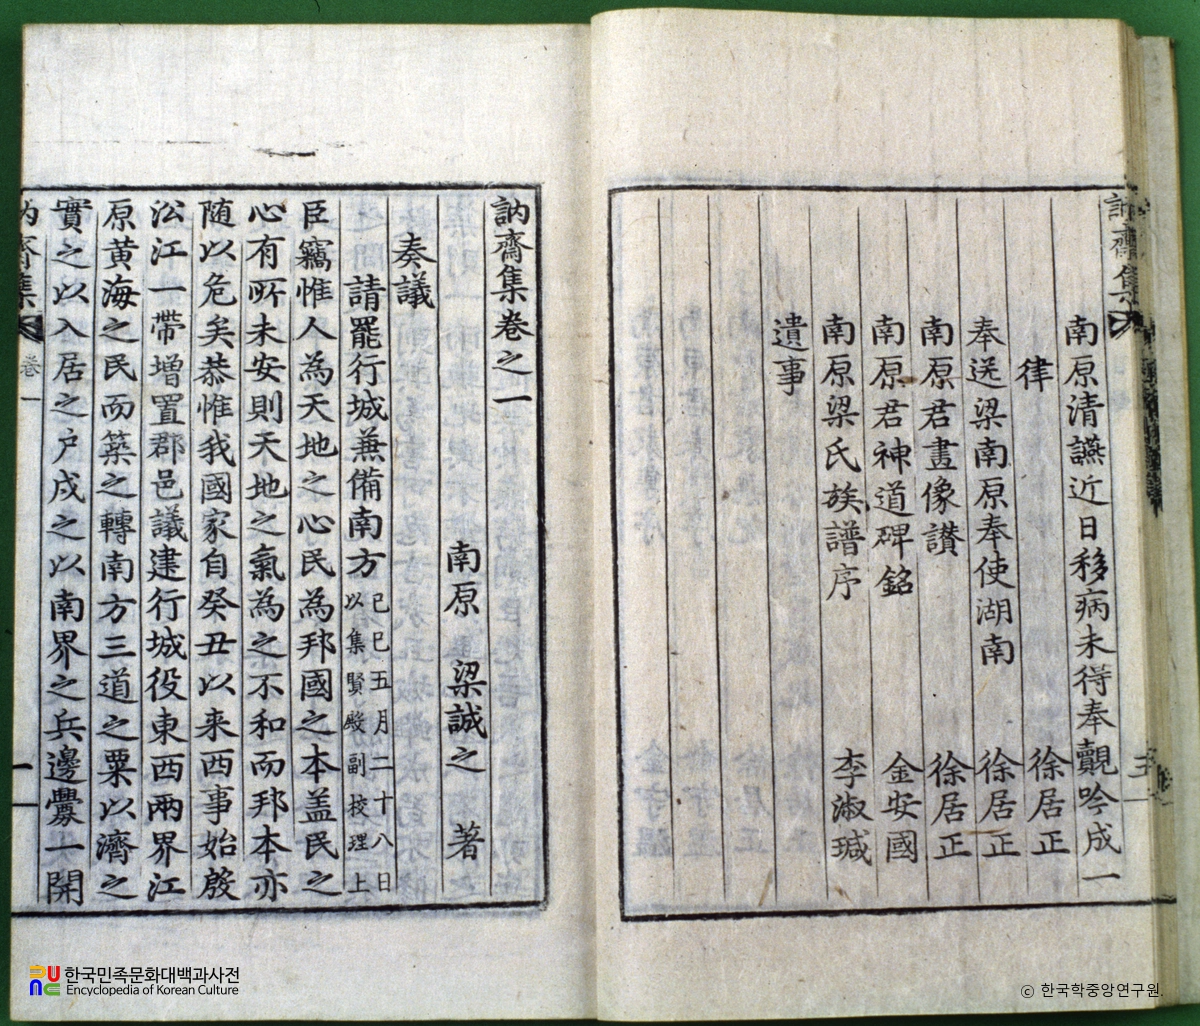 訥齋集
南原清讌近日移病未得奉觀吟成一
律 徐居正
奉送梁南原奉使湖南 徐居正
南原君畫像讃 徐居正
南原君神道碑銘 金安國
南原梁氏族譜序 李淑瑊
遺事
訥齋集卷之一
南原 梁誠之 著
奏議
請罷行城兼備南方 己巳五月二十八日以集賢殿副校理上
臣竊惟人為天地之心民為邦國之本盖民之
心有所未安則天地之氣為之不和而邦本亦
随以危矣恭惟我國家自癸丑以来西事始殷
沿江一帶增置郡邑議建行城役東西兩界江
原黄海之民而築之轉南方三道之粟以濟之
實之以入居之户戍之以南界之兵邊釁一開
訥齋集 卷一
한국민족문화대백과사전
Encyclopedia of Korean Culture
ⓒ 한국학중앙연구원